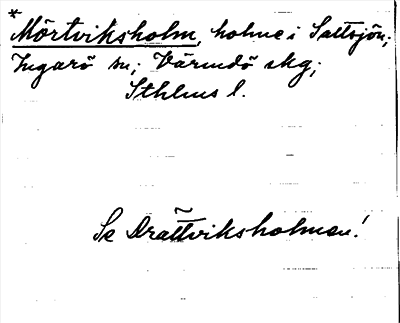 *
Mörtviksholm, holme i Saltsjön;
Ingarö sn; Värmdö skg;
Sthlms l.
Se Drättviksholmen!